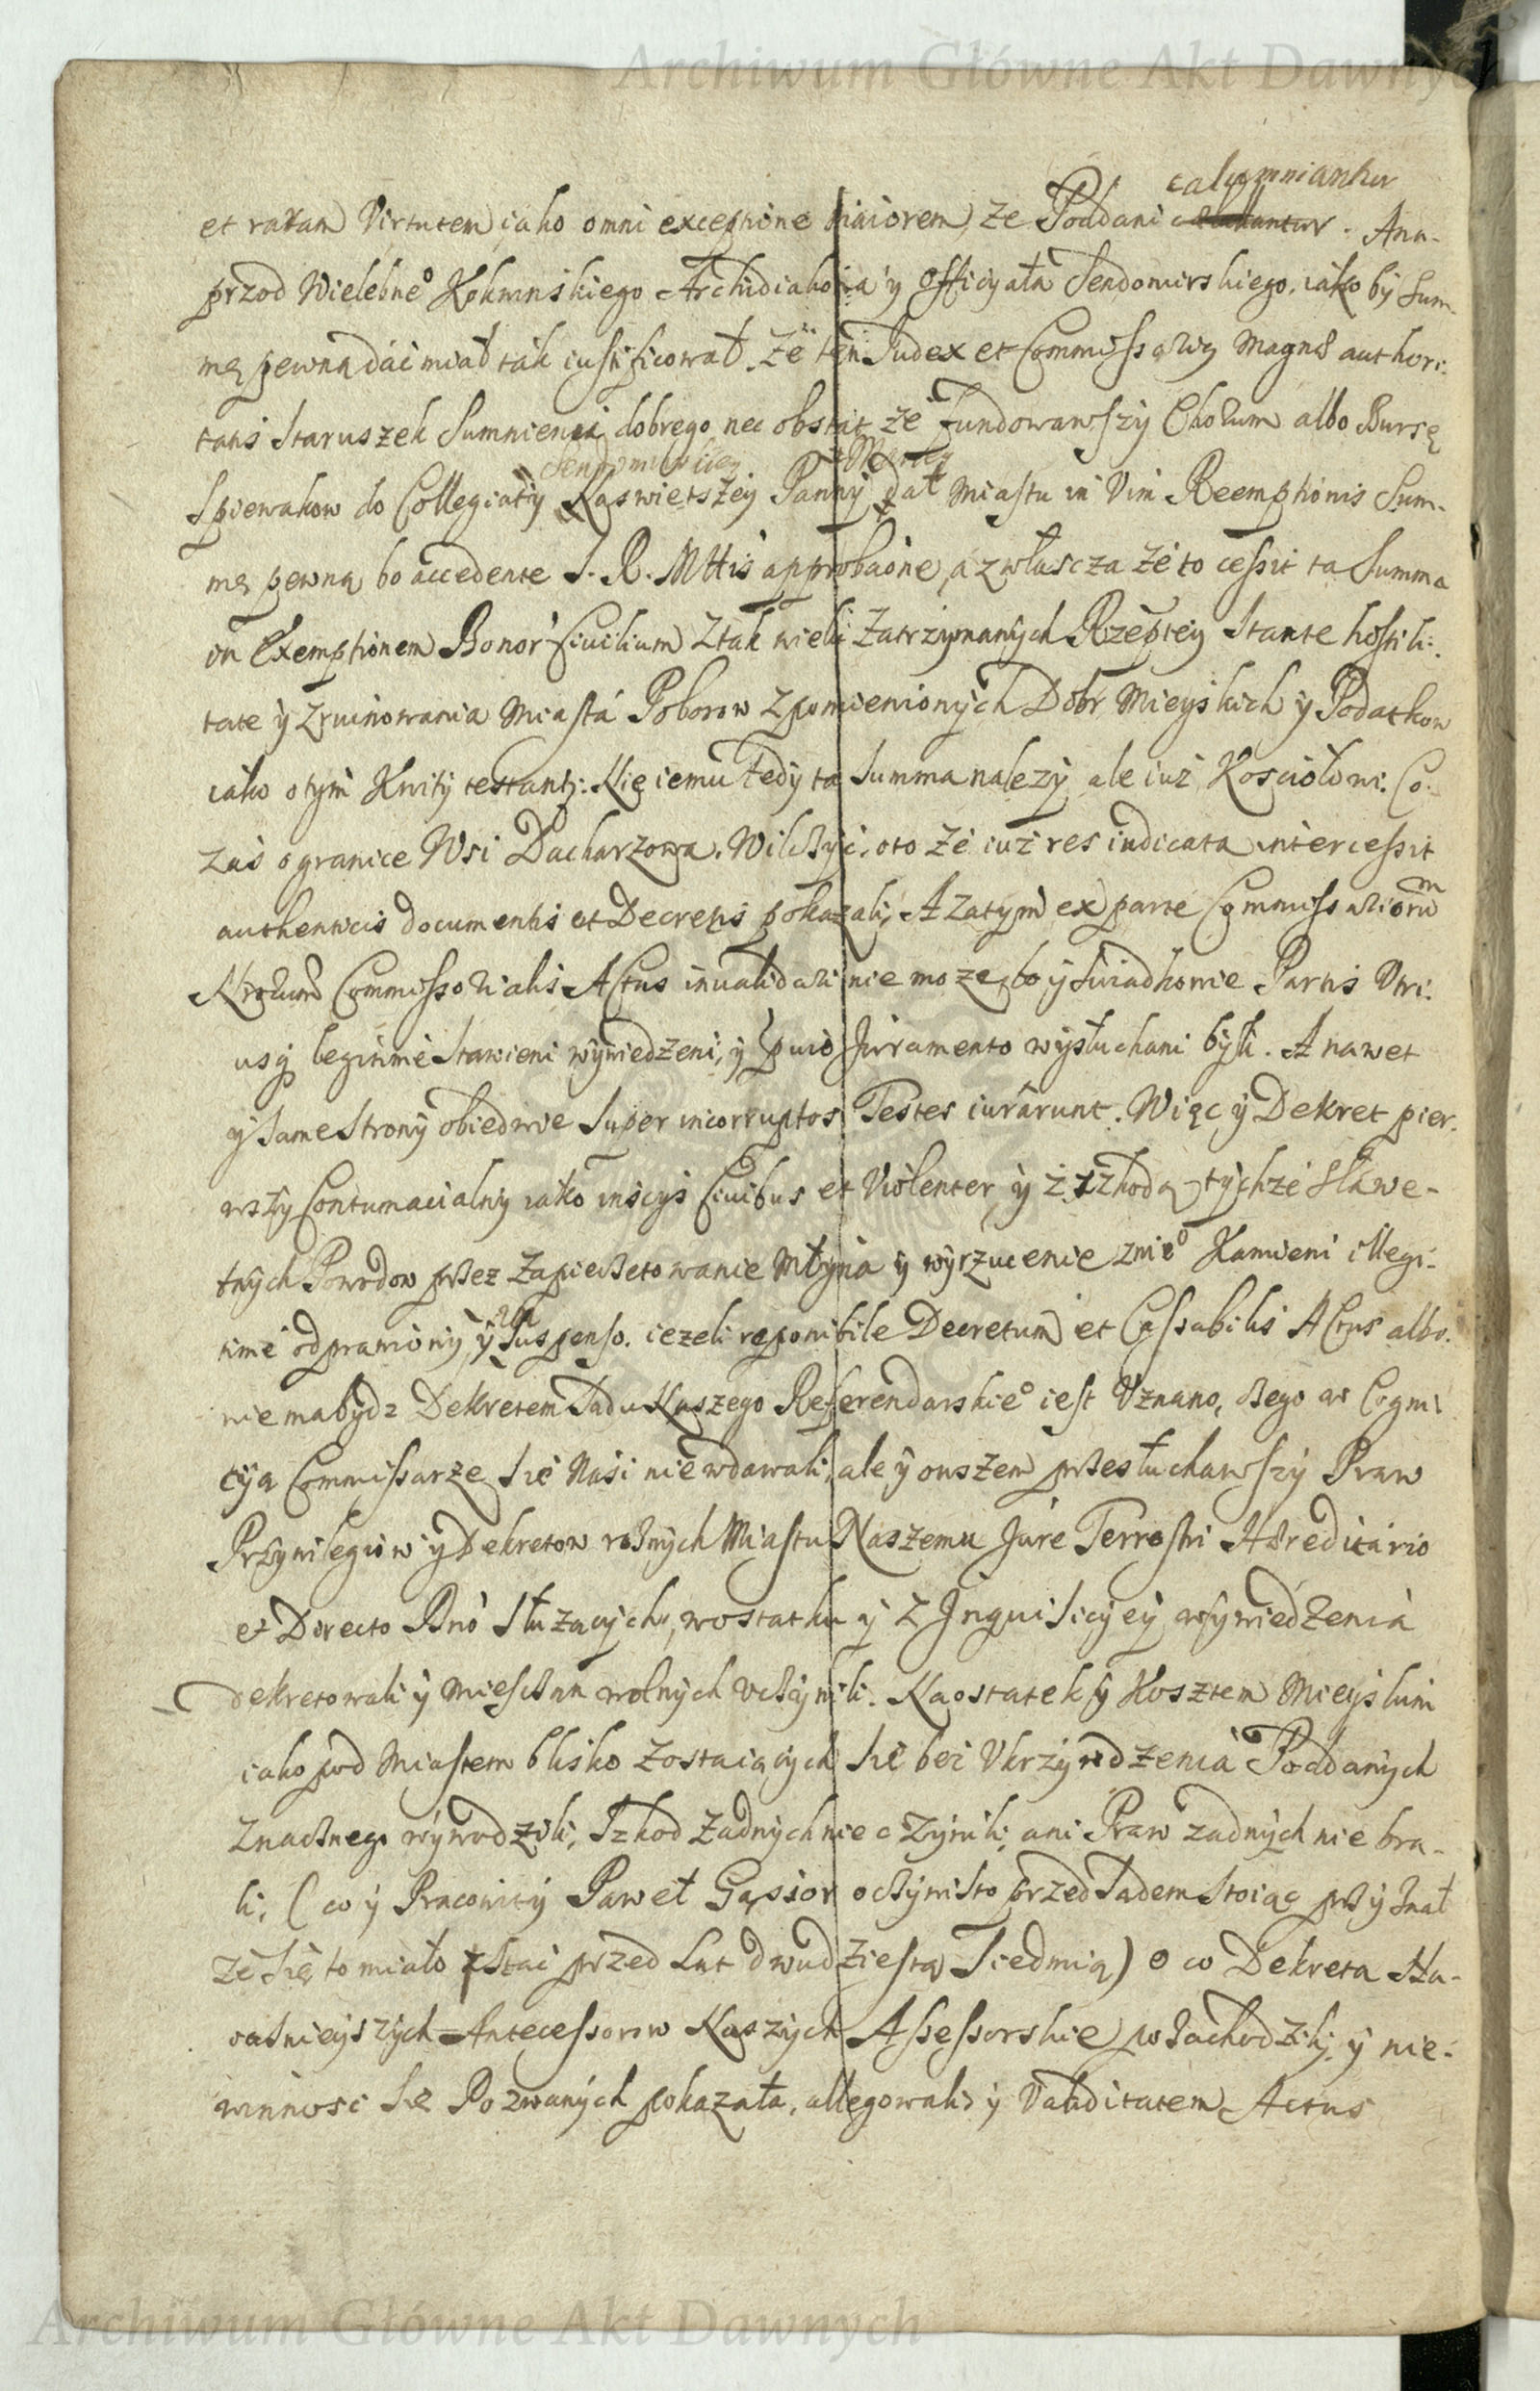 Archiwum Główne Akt Dawnych
calumniantur
et ratam Virtutem iako omni exceptione maiorem, ze Poddani . Ana-
przod Wielebne° Kokmnskiego Archidiakona y Officyała Sendomirskiego, iako by Sum-
mę pewną dać miał tak iustificował. Ze ten Iudex et Commissarz Magnæ authori-
tatis Staruszek Sumnienia dobrego nec obstat ze fundowawszy Chorum albo Bursę
Sendomirskiey Mariey
Spiewakow do Collegiaty Naswietszey Panny dał Miastu in Vim Reemptionis Sum-
mę pewną bo accedente S. R. Mttis approbaõne, a zwłaszcza że to cessit ta Summa
in Exemptionem Bonor Ciuilium Ztak wielu Zatrzymanych Rzeptey Stante hostili-
tate y Zruinowania Miasta Poborow z pomienionych Dobr Mieyskich y Podatkow
iako o tym Kwity testantr: Nie iemu tedy ta Summa nalezy ale iuż Kosciołowi. Co
zaś o granice Wsi Dacharzowa, Wilczyc, oto że iuż res iudicata intercessit
authenticis documentis et Decretis pokazali, A zatym ex parte Commissariorum
Commissorialis Actus inualidari nie moze, bo y Swiadkowie Partis Vtri-
usq legitime Stawieni wywiedzeni, y puio Iuramento wysłuchani byli. A nawet
y same Strony obiedwie Super incorruptos Testes iurarunt. Więc y Dekret pier-
wszy Contumacialny iako insciys Ciuibus et Violenter y z szkodą tychże Sławe-
tnych Powodow przez Zapieczetowanie Młyna y wyrzucenie znie° Kamieni illegi-
time odprawiony, y Suspenso. iezeli reponibile Decretum et Cassabilis Actus albo
nie ma bydz Dekretem Sadu Naszego Referendarskie° iest Vznano, czego w Cogni
cyą Commissarze Sie Nasi nie wdawali, ale y owszem przesłuchawszy Praw
Przywilegiow y Dekretow roznych Miastu Naszemu Jure Terrestri Hæreditario
et Directo Dnio Służących, w ostatku y Z Inquisicyey wywiedzenia
dekretowali y Miesczan wolnych vczynili. Naostatek y Kosztem Mieyskim
iako pod Miastem blisko Zostaiących Sie bez Vkrzywdzenia Poddanych
Znacznego wywodzili, Szkod Zadnych nie czynili, ani Praw zadnych nie bra-
li, (co y Pracowity Paweł Gąsior oczywisto przed Sadem Stoiąc przyznał
że Się to miało Stac przed Lat dwudziestą Siedmią) o co Dekreta Na-
iasnieyszych Antecessorow Naszych Assessorskie pozachodzily, y nie-
winnosc Sie Pozwanych pokazała, allegowali y Validitatem Actus
Archiwum Główne Akt Dawnych